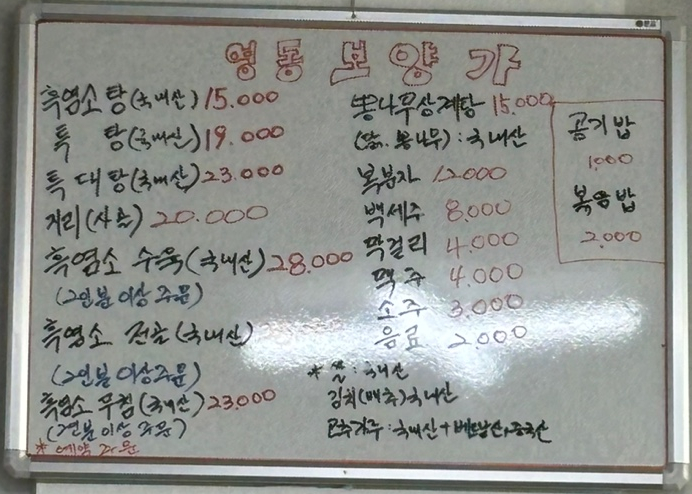 영동 보양가
흑염소 탕(국내산) 15.000
특 탕(국내산) 19.000
특대탕(국내산) 23.000
지리(사골) 20.000
흑염소 수육(국내산) 28.000
(2인분 이상 주문)
흑염소 전골(국내산)
(2인분 이상 주문)
흑염소 무침(국내산) 23.000
(2인분 이상 주문)
* 예약 주문
뽕나무삼계탕 15.000
(닭, 뽕나무) : 국내산
복분자 12000
백세주 8.000
막걸리 4.000
맥주 4.000
소주 3.000
음료 2.000
* 쌀 : 국내산
김치(배추) 국내산
고추가루 : 국내산 + 베트남산, 중국산
공기밥
1,000
볶음밥
2,000